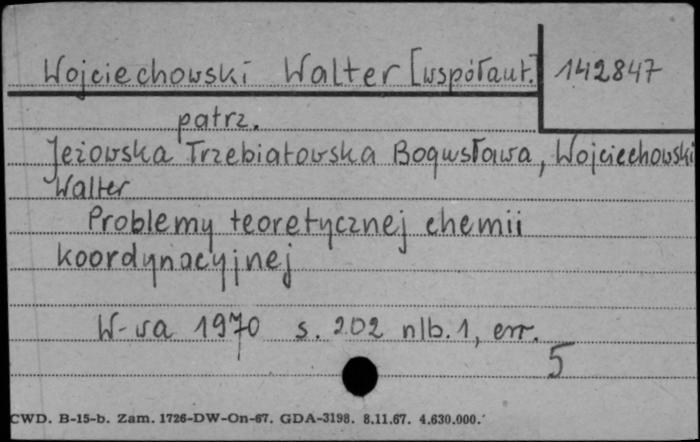 Wojciechowski Walter [współaut.] 142847
patrz.
Jeżowska Trzebiatowska Bogusława, Wojciechowski
Walter
Problemy teoretycznej chemii
koordynacyjnej
W-wa 1970 s. 202 nlb. 1, err.
5
CWD. B-15-b. Zam. 1726-DW-On-67. GDA-3198. 8.11.67. 4.630.000.